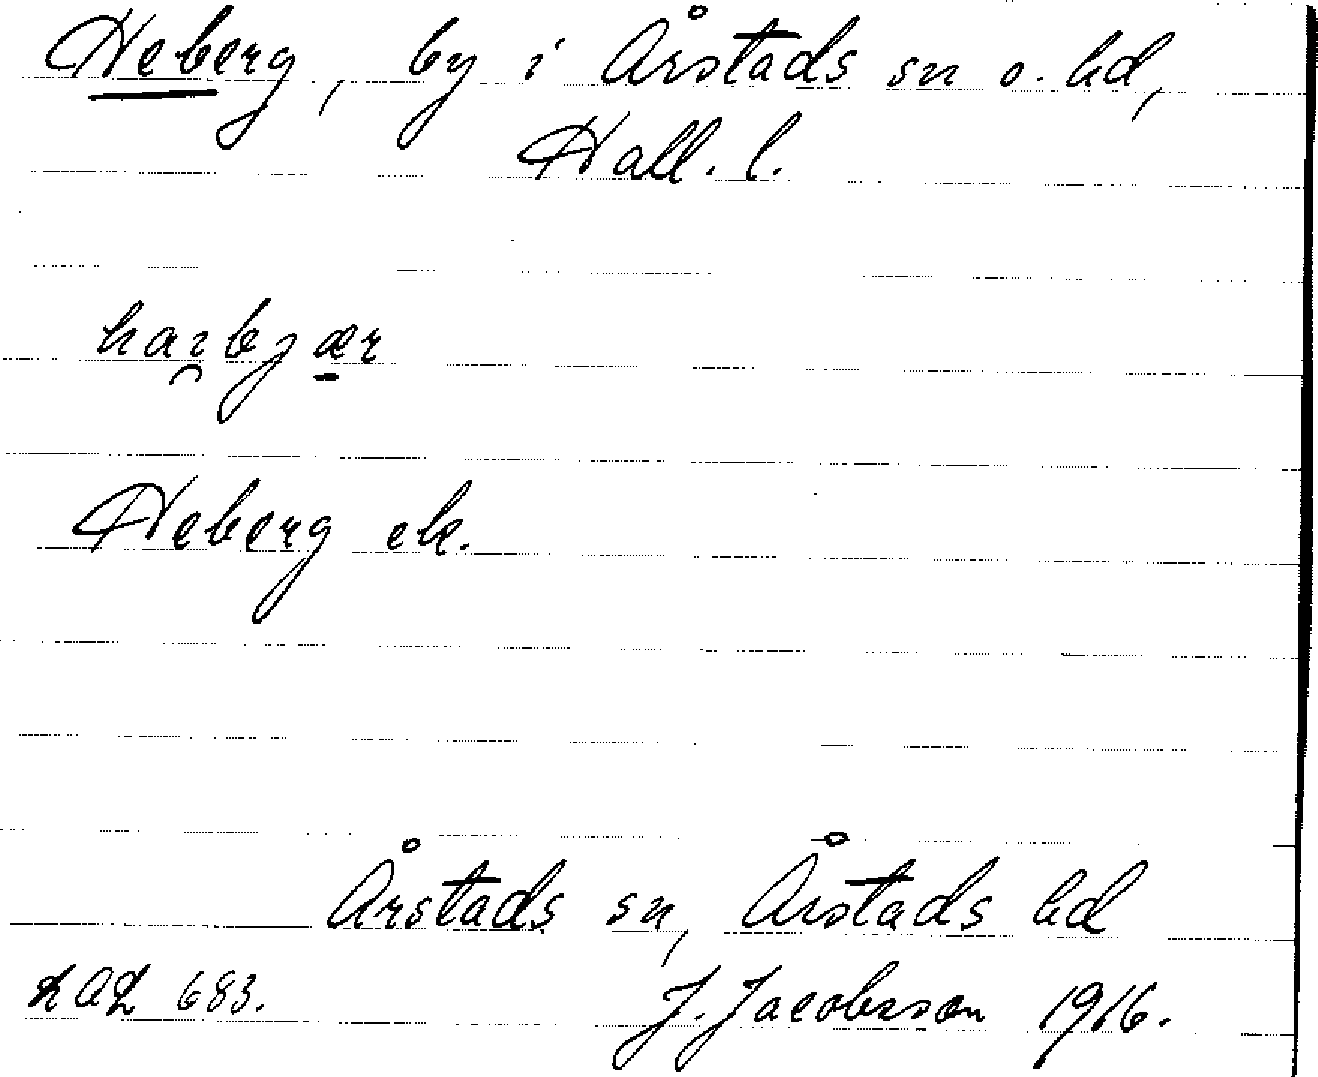 Heberg, by i Årstads sn o. hd,
Hall. l.
haɪ̯bjær
Heberg ek.
Årstads sn, Årstads hd
LAL 683. J. Jacobsson 1916.